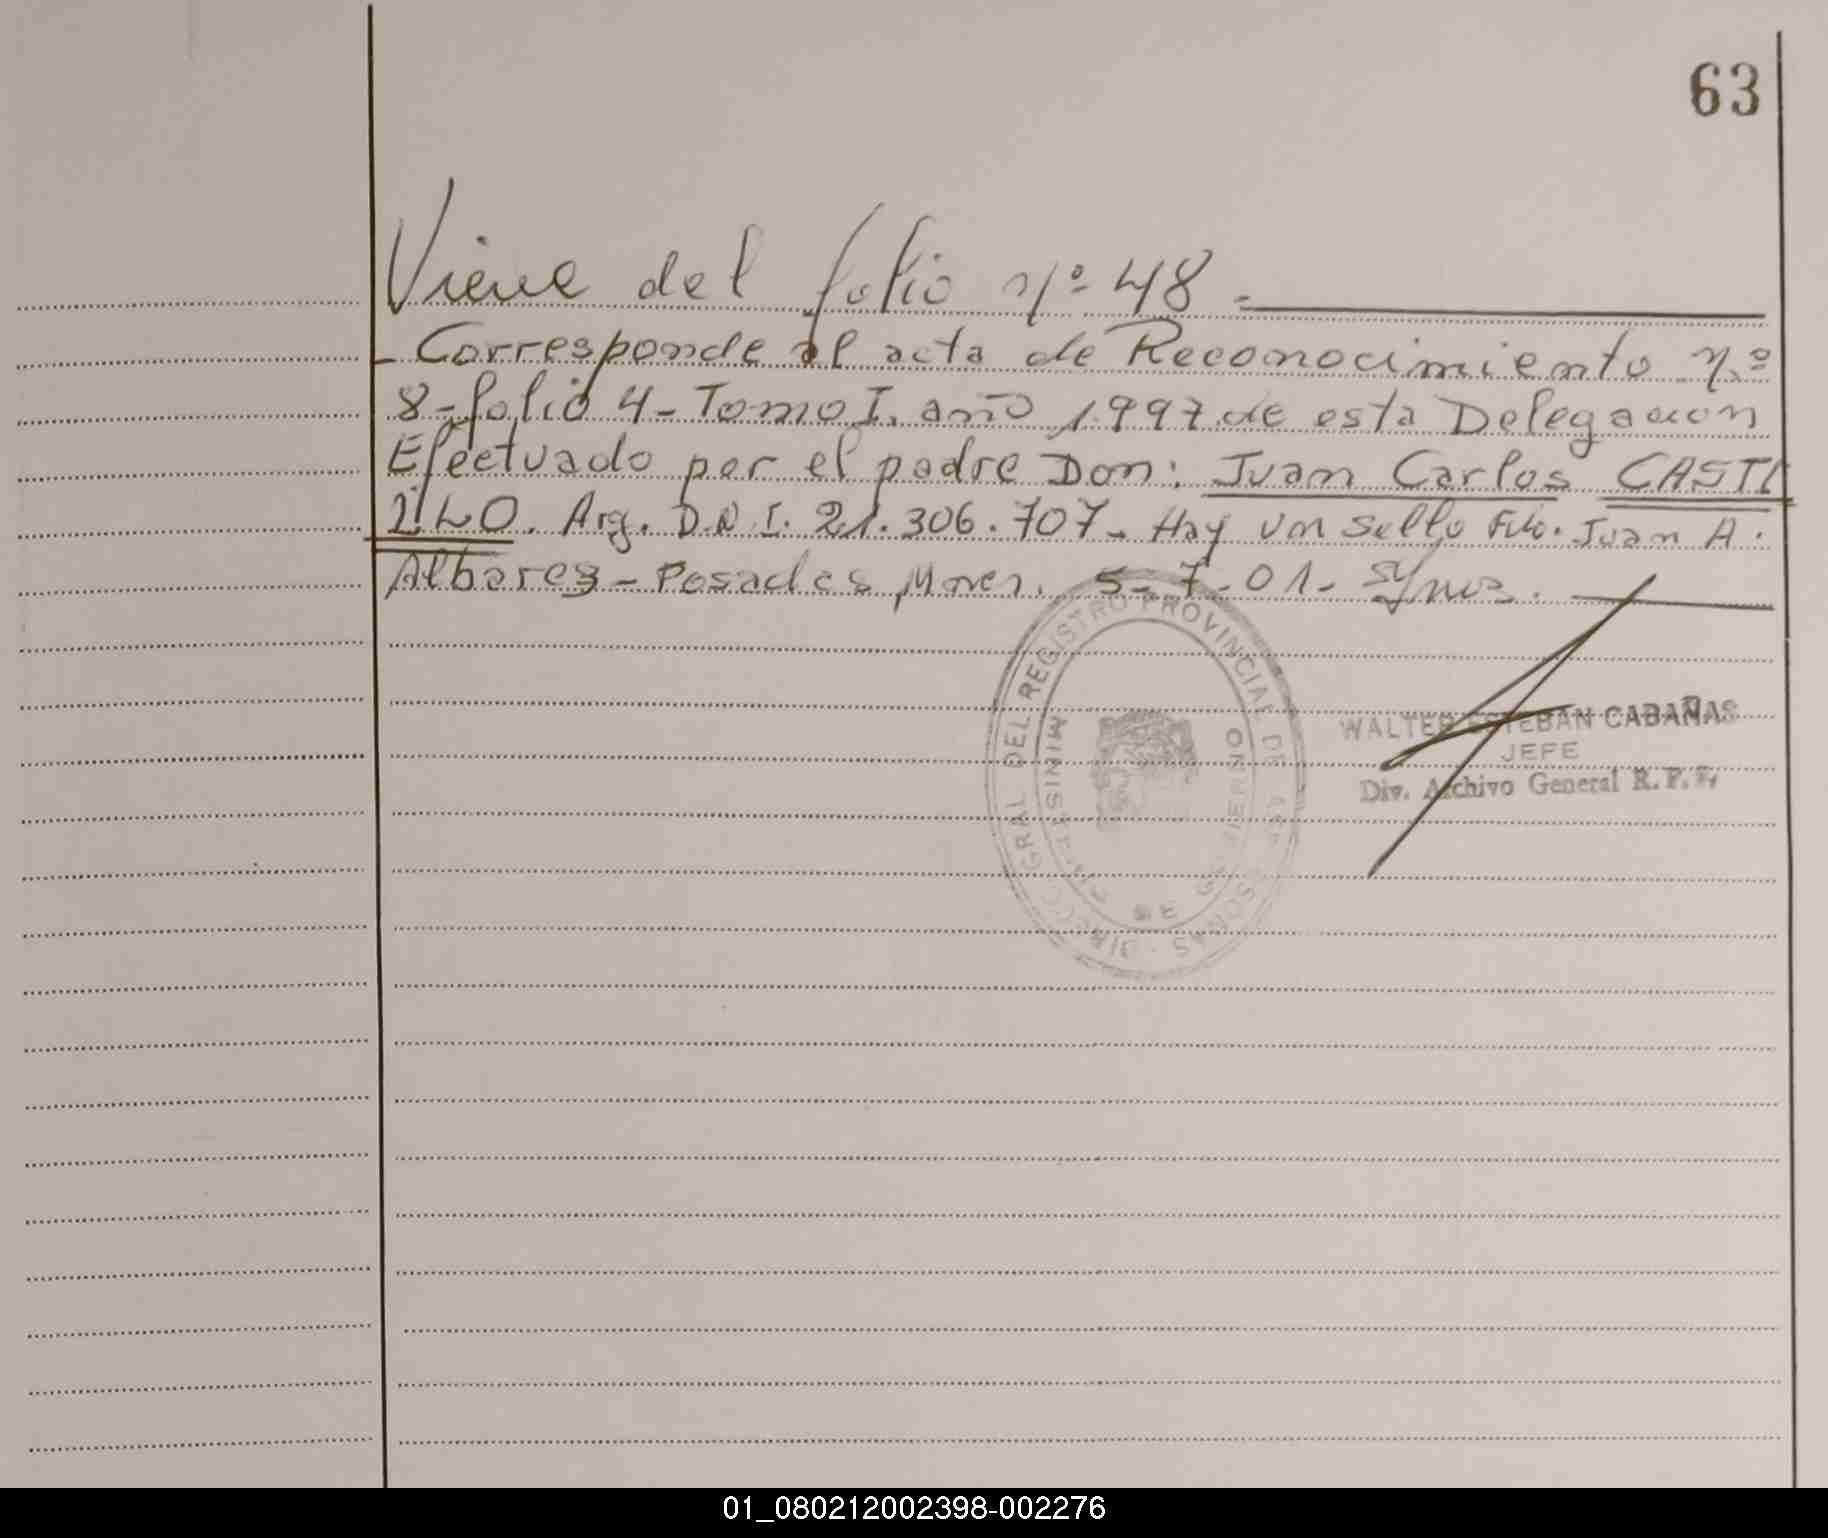 63
Viene del folio nº 48.
- Corresponde al acta de Reconocimiento nº
8 - folio 4 - Tomo I. año 1.997 de esta Delegación
Efectuado por el padre Don: Juan Carlos CASTI
LLO. Arg. D.N.I. 21.306.707 - Hay un sello Fdo. Juan A.
Albarez - Posadas, Mnes. 5-7-01-
DIRECC. GRAL DEL REGISTRO PROVINCIAL DE LAS PERSONAS
MINISTERIO DE GOBIERNO
WALTER ESTEBAN CABAÑAS
JEFE
Div. Archivo General R. P. P.
01_080212002398-002276